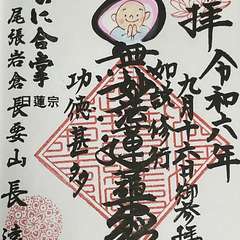 拝
令和六年
九月十六日御参拝
如説修行
無妙法蓮華經
功徳甚多
心に合掌
蓮宗
尾張岩倉 長要山 長遠